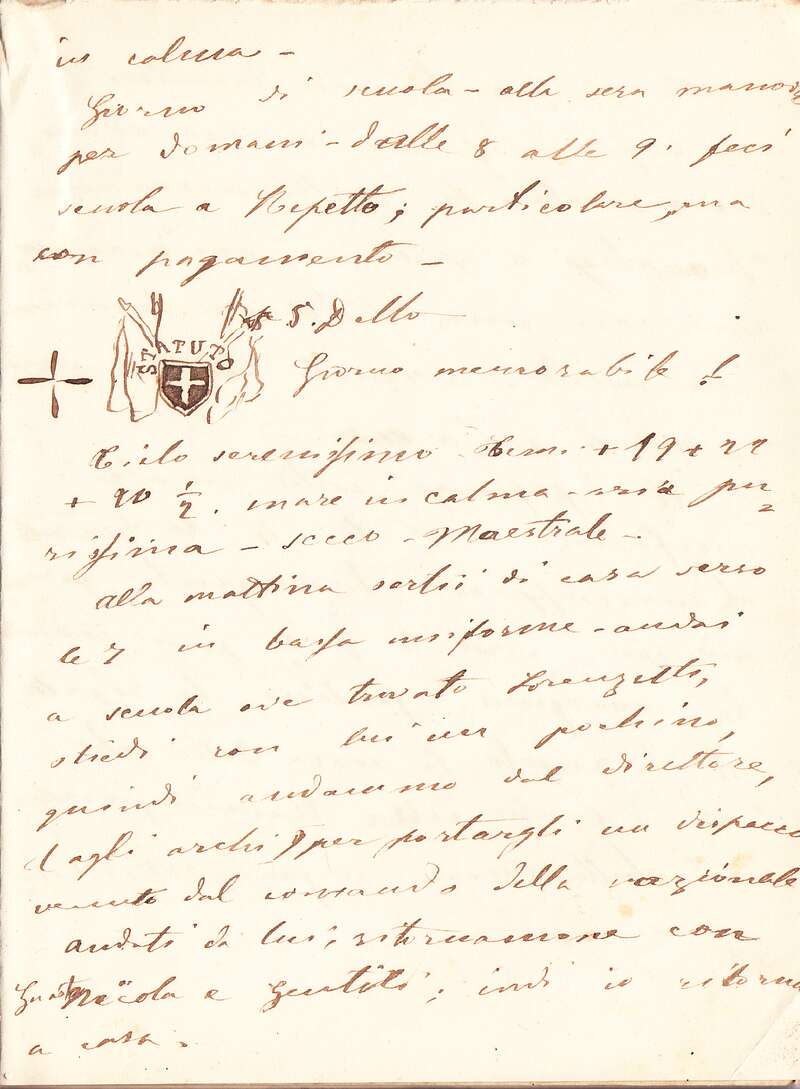 in calma -
Giorno di scuola - alla sera
per domani - dalle 8 alle 9. feci
scuola a Repetto; particolare, ma
con pagamento -
5. Dello
STATUTO
Giorno memorabile !
Cielo serenissimo Term. + 19 + 22
+ 20 1/2. mare in calma - aria pu=
rissima - secco - Maestrale -
Alla mattina sortii di casa verso
le 7 in bassa uniforme - andai
a scuola ove trovato Lorenzetti,
stiedi con lui un pochino,
quindi andammo dal direttore,
(agli archi) per portargli un dispaccio
venuto dal comando della nazionale
andati da lui, ritornammo con
Nicola e Gentili; indi io ritornai
a casa.